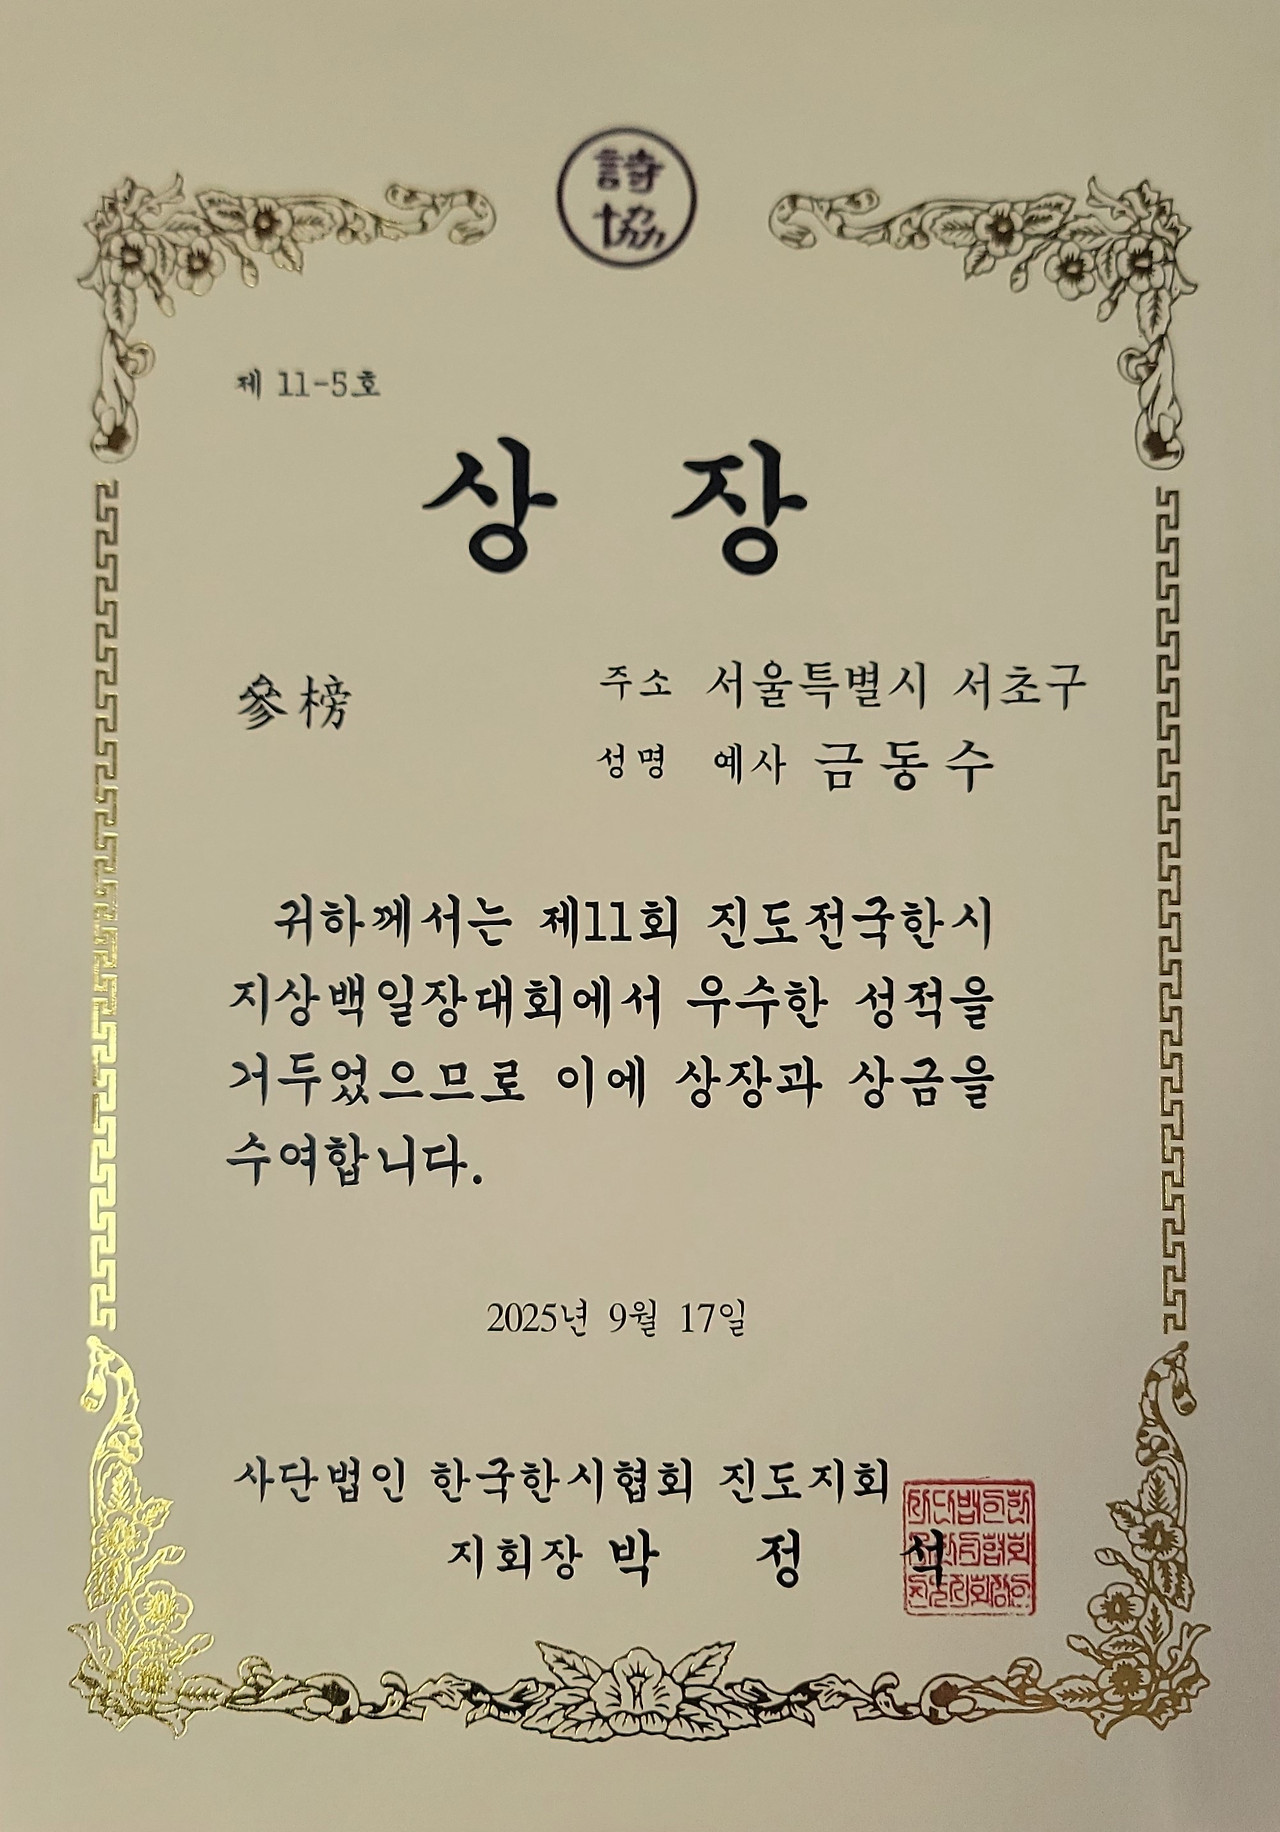 詩
協
제 11-5호
상 장
參榜
주소 서울특별시 서초구
성명 예사 금동수
귀하께서는 제11회 진도전국한시
지상백일장대회에서 우수한 성적을
거두었으므로 이에 상장과 상금을
수여합니다.
2025년 9월 17일
사단법인 한국한시협회 진도지회
지회장 박 정 석